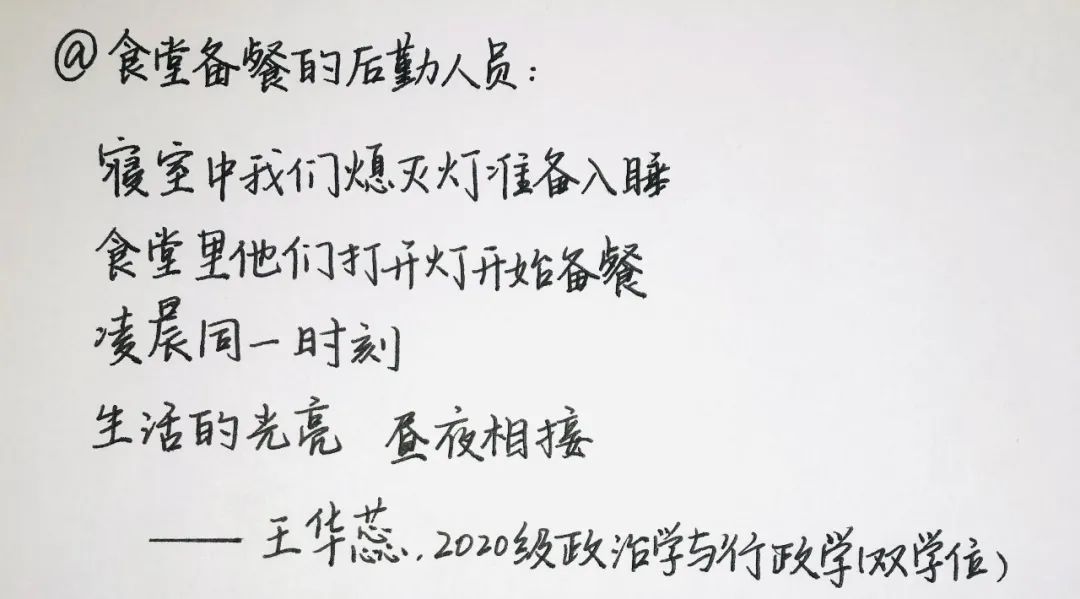 @食堂备餐的后勤人员：
寝室中我们熄灭灯准备入睡
食堂里他们打开灯开始备餐
凌晨同一时刻
生活的光亮 昼夜相接
——王华蕊，2020级政治学与行政学(双学位)